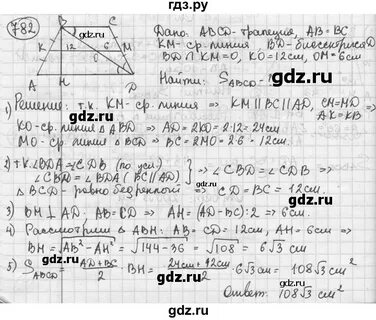 гдз.ру
782
B C
K 12 6 M
O
A H D
Дано: ABCD-трапеция, AB=BC
KM-ср.линия BD-биссектриса D
BD∩KM=O, KO=12см, OM=6см
Найти: S_ABCD-
1) Решение: т.к. KM-ср. линия ⇒ KM∥BC∥AD, CM=MD ⇒ AK=KB ⇒
KO-ср.линия △ABD ⇒ AD=2KO=2·12=24см
MO-ср.линия △ ⇒ BC=2MO=2·6=12см.
2) т.к ∠BDA=∠CDB (по усл)
∠CBD=∠BDA (BC∥AD) ⇒ ∠CBD=∠CDB ⇒
△BCD-равнобедренной ⇒ CD=BC=12см.
3) BH⊥AD, AB=CD ⇒ AH=(AD-BC):2 ⇒ 6см.
4) Рассмотрим △ABH: AB=CD=12см, AH=6см ⇒
BH=√AB²-AH²=√144-36=√108=6√3см
5) S_ABCD=AD+BC/2·BH=24см+12см/2·6√3см=108√3см²
Ответ: 108√3см²